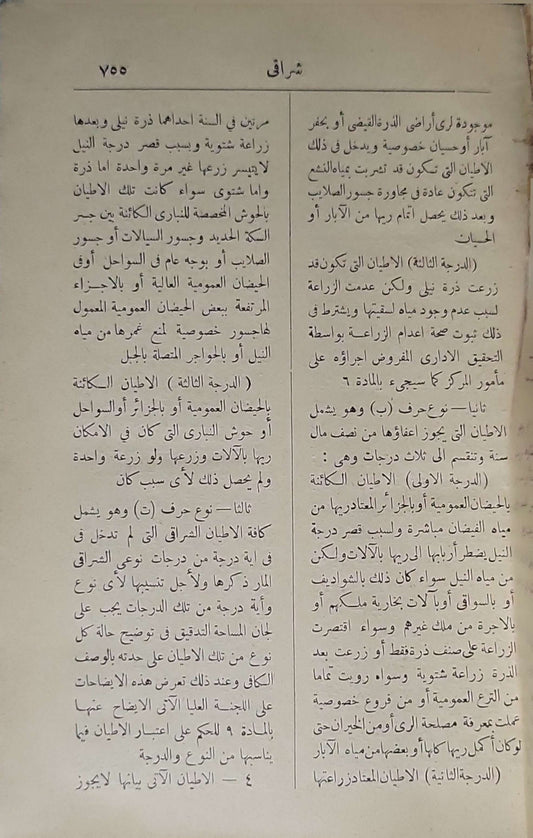 شراقى
٧٥٥
موجودة لرى أراضى الذرة القيضى أو بحفر
آبار أو حسيان خصوصية ويدخل فى ذلك
الاطيان التى تكون قد تشربت بمياه النشع
التى تتكون عادة فى مجاورة جسور الصلايب
وبعد ذلك يحصل اتمام ريها من الآبار أو
الحسيان
(الدرجة الثالثة) الاطيان التى تكون قد
زرعت ذرة نيلى ولكن عدمت الزراعة
لسبب عدم وجود مياه لسقيتها ويشترط فى
ذلك ثبوت صحة اعدام الزراعة بواسطة
التحقيق الادارى المفروض اجراؤه على
مأمور المركز كما سيجىء بالمادة ٦
ثانيا — نوع حرف (ب) وهو يشمل
الاطيان التى يجوز اعفاؤها من نصف مال
سنة وتنقسم الى ثلاث درجات وهى :
(الدرجة الاولى) الاطيان الكائنة
بالحيضان العمومية أو بالجزائر المعتاد ريها من
مياه الفيضان مباشرة ولسبب قصر درجة
النيل يضطر أربابها الى ريها بالآلات ولكن
من مياه النيل سواء كان ذلك بالشواديف
أو بالسواقى أو بآلات بخارية ملكهم أو
بالاجرة من ملك غيرهم وسواء اقتصرت
الزراعة على صنف ذرة فقط أو زرعت بعد
الذرة زراعة شتوية وسواء رويت تماما
من الترع العمومية أو من فروع خصوصية
عملت بمعرفة مصلحة الرى أو من الخيران حتى
لو كان أكمل ريها كلها أو بعضها من مياه الآبار
(الدرجة الثانية) الاطيان المعتاد زراعتها
مرتين فى السنة احداهما ذرة نيلى وبعدها
زراعة شتوية وبسبب قصر درجة النيل
لا يتيسر زرعها غير مرة واحدة اما ذرة
واما شتوى سواء كانت تلك الاطيان
بالحوش المخصصة للنبارى الكائنة بين جسر
السكة الحديد وجسور السيالات أو جسور
الصلايب أو بوجه عام فى السواحل أو فى
الحيضان العمومية العالية أو بالاجزاء
المرتفعة ببعض الحيضان العمومية المعمول
لها جسور خصوصية لمنع غمرها من مياه
النيل أو بالحواجر المتصلة بالجبل
(الدرجة الثالثة) الاطيان الكائنة
بالحيضان العمومية أو بالجزائر أو السواحل
أو حوش النبارى التى كان فى الامكان
ريها بالآلات وزرعها ولو زرعة واحدة
ولم يحصل ذلك لأى سبب كان
ثالثا — نوع حرف (ت) وهو يشمل
كافة الاطيان الشراقى التى لم تدخل فى
فى اية درجة من درجات نوعى الشراقى
المار ذكرها ولأجل تنسيبها لأى نوع
وأية درجة من تلك الدرجات يجب على
لجان المساحة التدقيق فى توضيح حالة كل
نوع من تلك الاطيان على حدته بالوصف
الكافى وعند ذلك تعرض هذه الايضاحات
على اللجنة العليا الآتى الايضاح عنها
بالمادة ٩ للحكم على اعتبار الاطيان فيما
يناسبها من النوع والدرجة
٤ — الاطيان الآتى بيانها لا يجوز